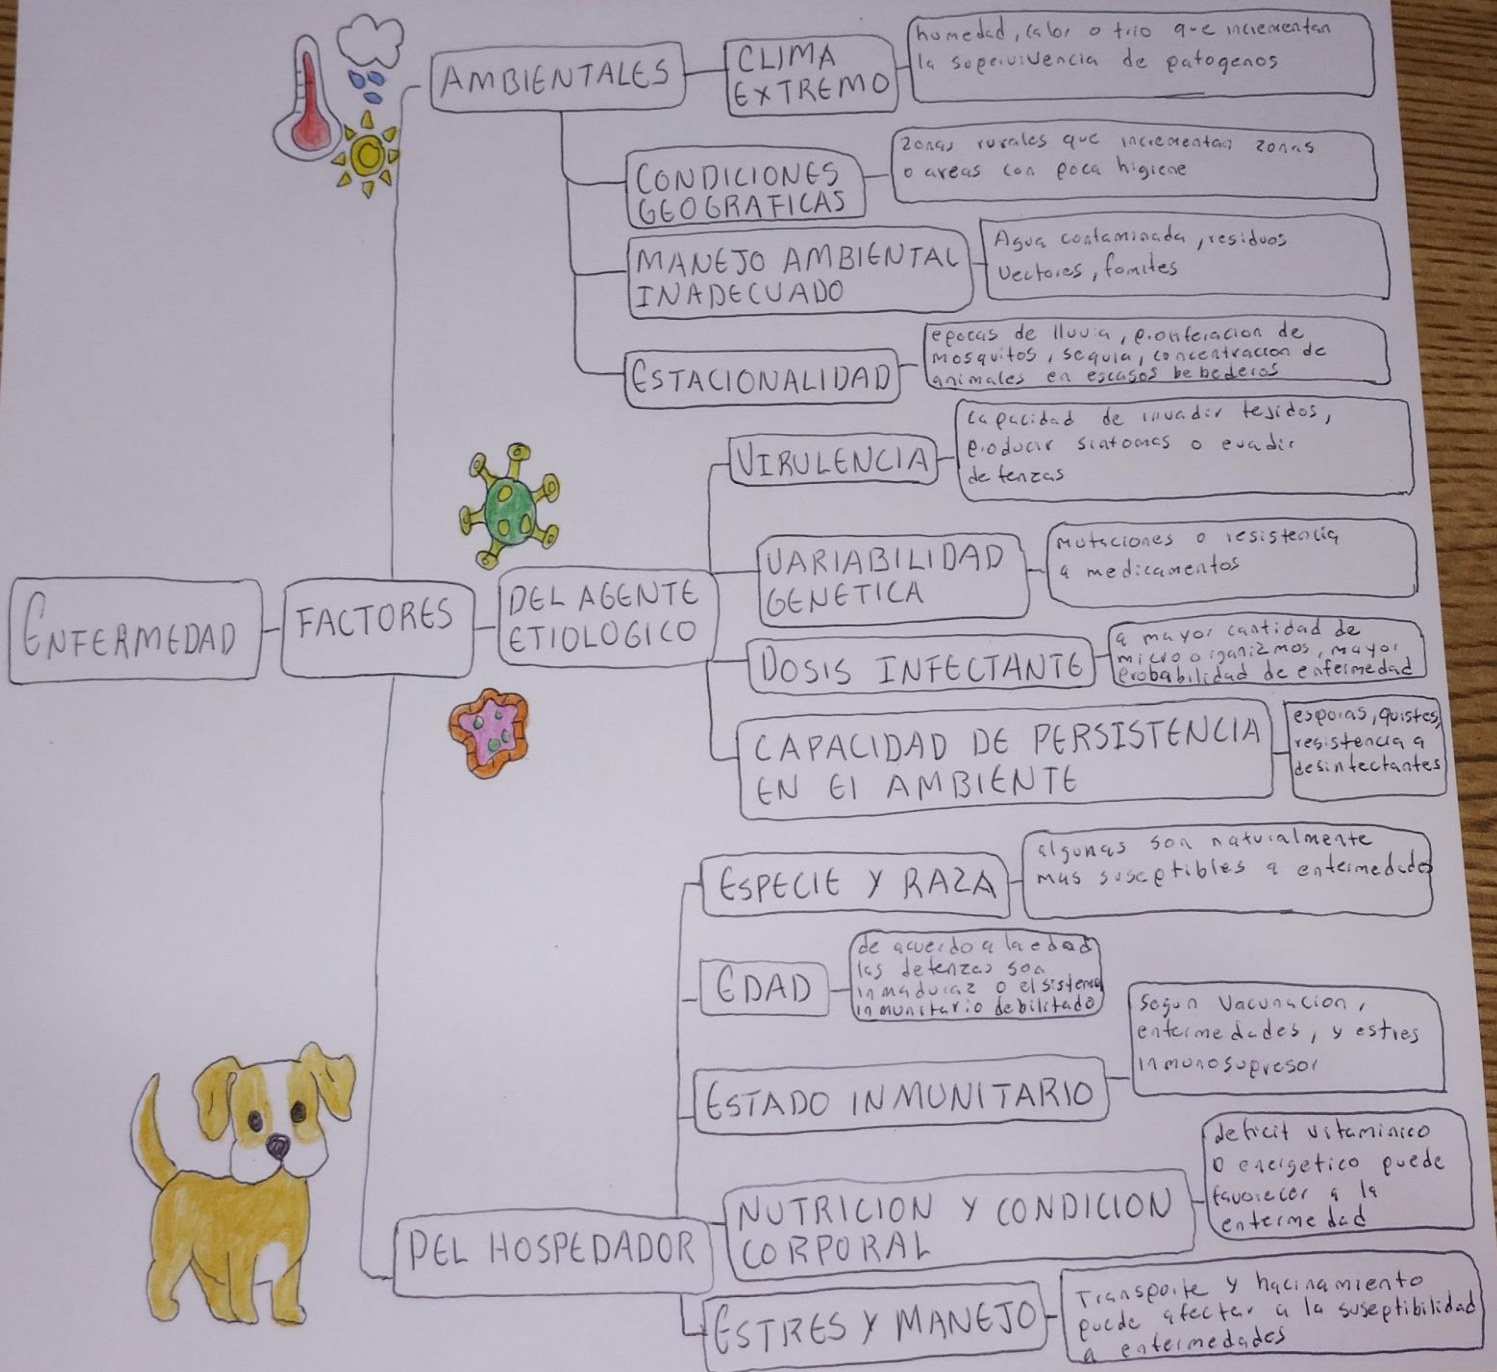 ENFERMEDAD
FACTORES
AMBIENTALES
CLIMA
EXTREMO
humedad, calor o frio que incrementan
la supervivencia de patogenos
CONDICIONES
GEOGRAFICAS
zonas rurales que incrementan zonas
o areas con poca higiene
MANEJO AMBIENTAL
INADECUADO
Agua contaminada, residuos
vectores, fomites
ESTACIONALIDAD
epocas de lluvia, proliferacion de
mosquitos, sequia, concentracion de
animales en escasos bebederos
DEL AGENTE
ETIOLOGICO
VIRULENCIA
capacidad de invadir tejidos,
producir sintomas o evadir
defenzas
VARIABILIDAD
GENETICA
mutaciones o resistencia
a medicamentos
DOSIS INFECTANTE
a mayor cantidad de
microorganizmos, mayor
probabilidad de enfermedad
CAPACIDAD DE PERSISTENCIA
EN El AMBIENTE
esporas, quistes,
resistencia a
desinfectantes
DEL HOSPEDADOR
ESPECIE Y RAZA
algunas son naturalmente
mas susceptibles a enfermedades
EDAD
de acuerdo a la edad
las defenzas son
inmaduraz o el sistema
inmunitario debilitado
ESTADO INMUNITARIO
segun vacunacion,
enfermedades, y estres
inmunosupresor
NUTRICION Y CONDICION
CORPORAL
deficit vitaminico
o energetico puede
favorecer a la
enfermedad
ESTRES Y MANEJO
Transporte y hacinamiento
puede afectar a la suseptibilidad
a enfermedades